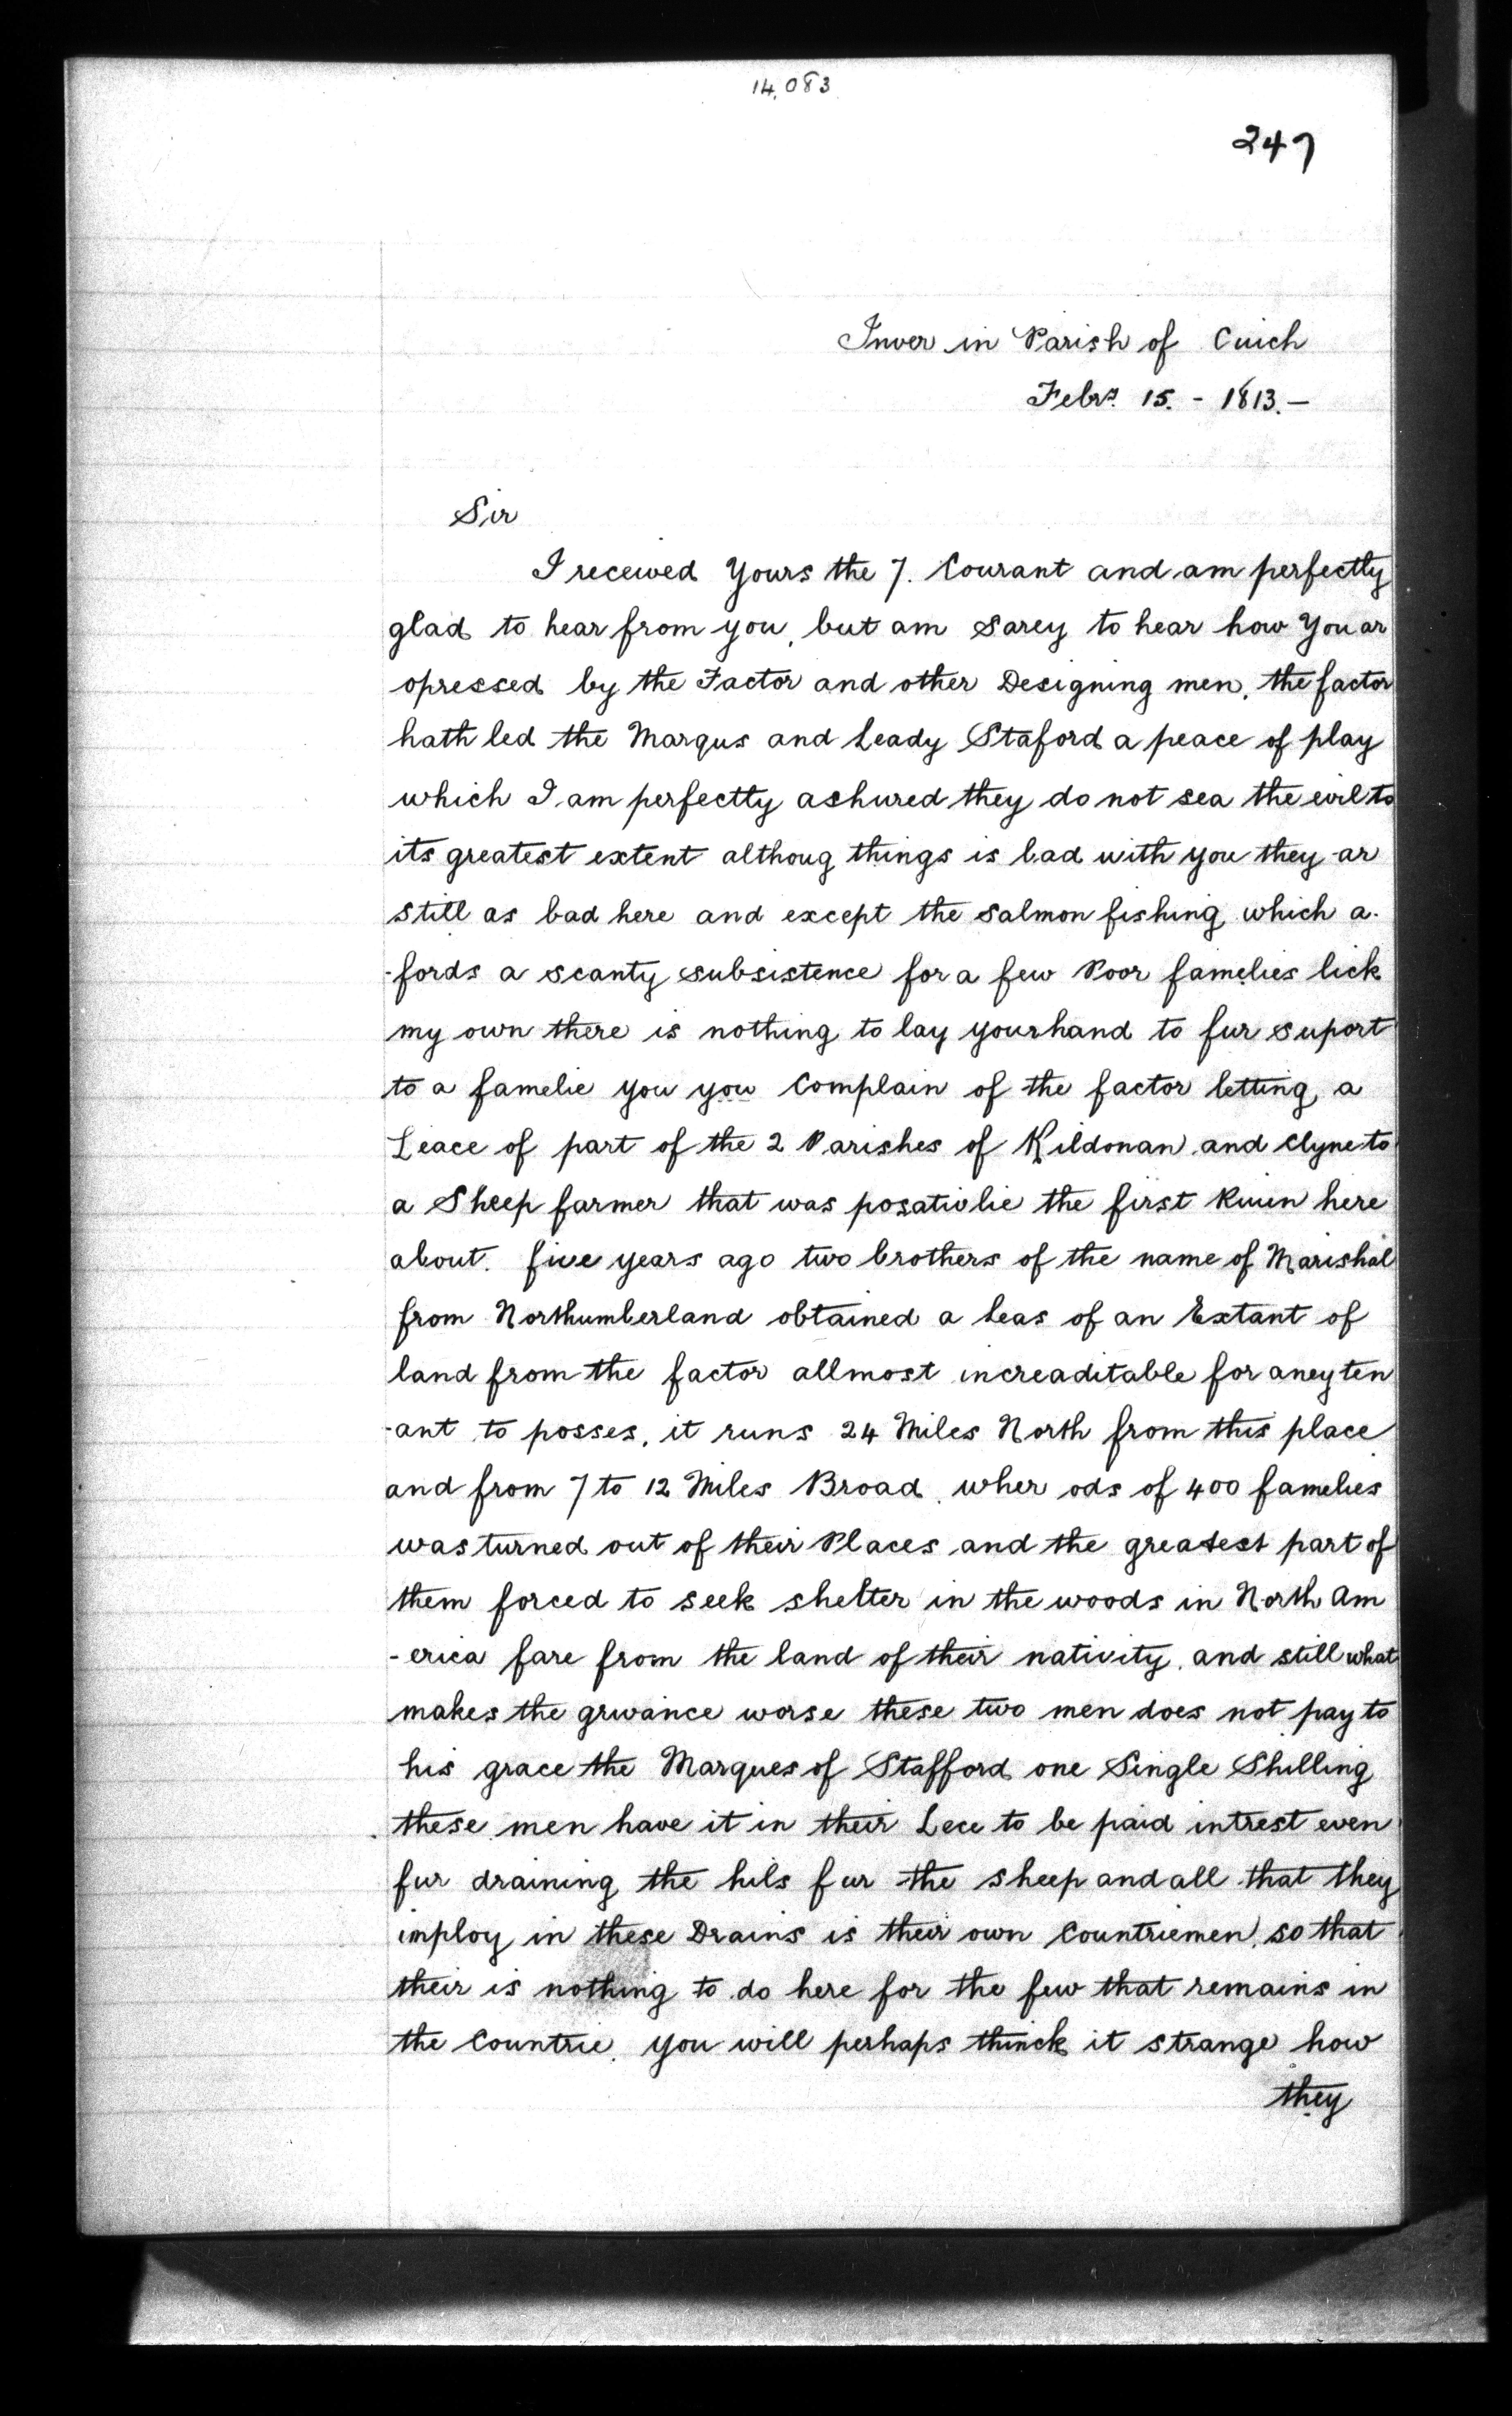 14,083
247
Inver in Parish of Cuich
Febry. 15. - 1813. -
Sir
I received Yours the 7. Courant and am perfectly
glad to hear from you, but am sarey to hear how You ar
opressed by the Factor and other Designing men, the factor
hath led the Marqus and Leady Staford a peace of play
which I am perfectly ashured they do not sea the evil to
its greatest extent althoug things is bad with you they ar
still as bad here and except the salmon fishing which a-
-fords a scanty subsistence for a few Poor famelies lick
my own there is nothing to lay your hand to fur suport
to a famelie you you Complain of the factor letting a
Leace of part of the 2 Parishes of Kildonan and Clyne to
a Sheep farmer that was posativlie the first Ruin here
about. five years ago two brothers of the name of Marishal
from Northumberland obtained a Leas of an Extant of
land from the factor allmost increaditable for aney ten
-ant to posses, it runs 24 Miles North from this place
and from 7 to 12 Miles Broad, wher ods of 400 famelies
was turned out of their Places and the greatest part of
them forced to seek shelter in the woods in North Am
-erica fare from the land of their nativity, and still what
makes the grivance worse these two men does not pay to
his grace the Marques of Stafford one Single Shilling
these men have it in their Lece to be paid intrest even
fur draining the hils fur the sheep and all that they
imploy in these Drains is their own Countriemen, so that
their is nothing to do here for the few that remains in
the Countrie, you will perhaps thinck it strange how
they